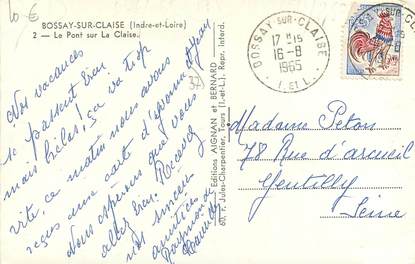 10 €
BOSSAY-SUR-CLAISE (Indre-et-Loire)
2 — Le Pont sur La Claise.
Nos vacances
se passent bien
mais hélas! ça va trop
vite, ce matin nous avons
reçus une carte d'Yvonne
Nous espérons que vous
allez bien. Recevez
nos sincères
amitiés
Raymonde
Editions AIGNAN et BERNARD
60, r. Jules-Charpentier, Tours (I.-et-L.) - Repr. Interd.
BOSSAY-SUR-CLAISE
17 H 15
16-8
1965
I. ET L.
Madame Peton
78 Rue d'arcueil
Gentilly
Seine